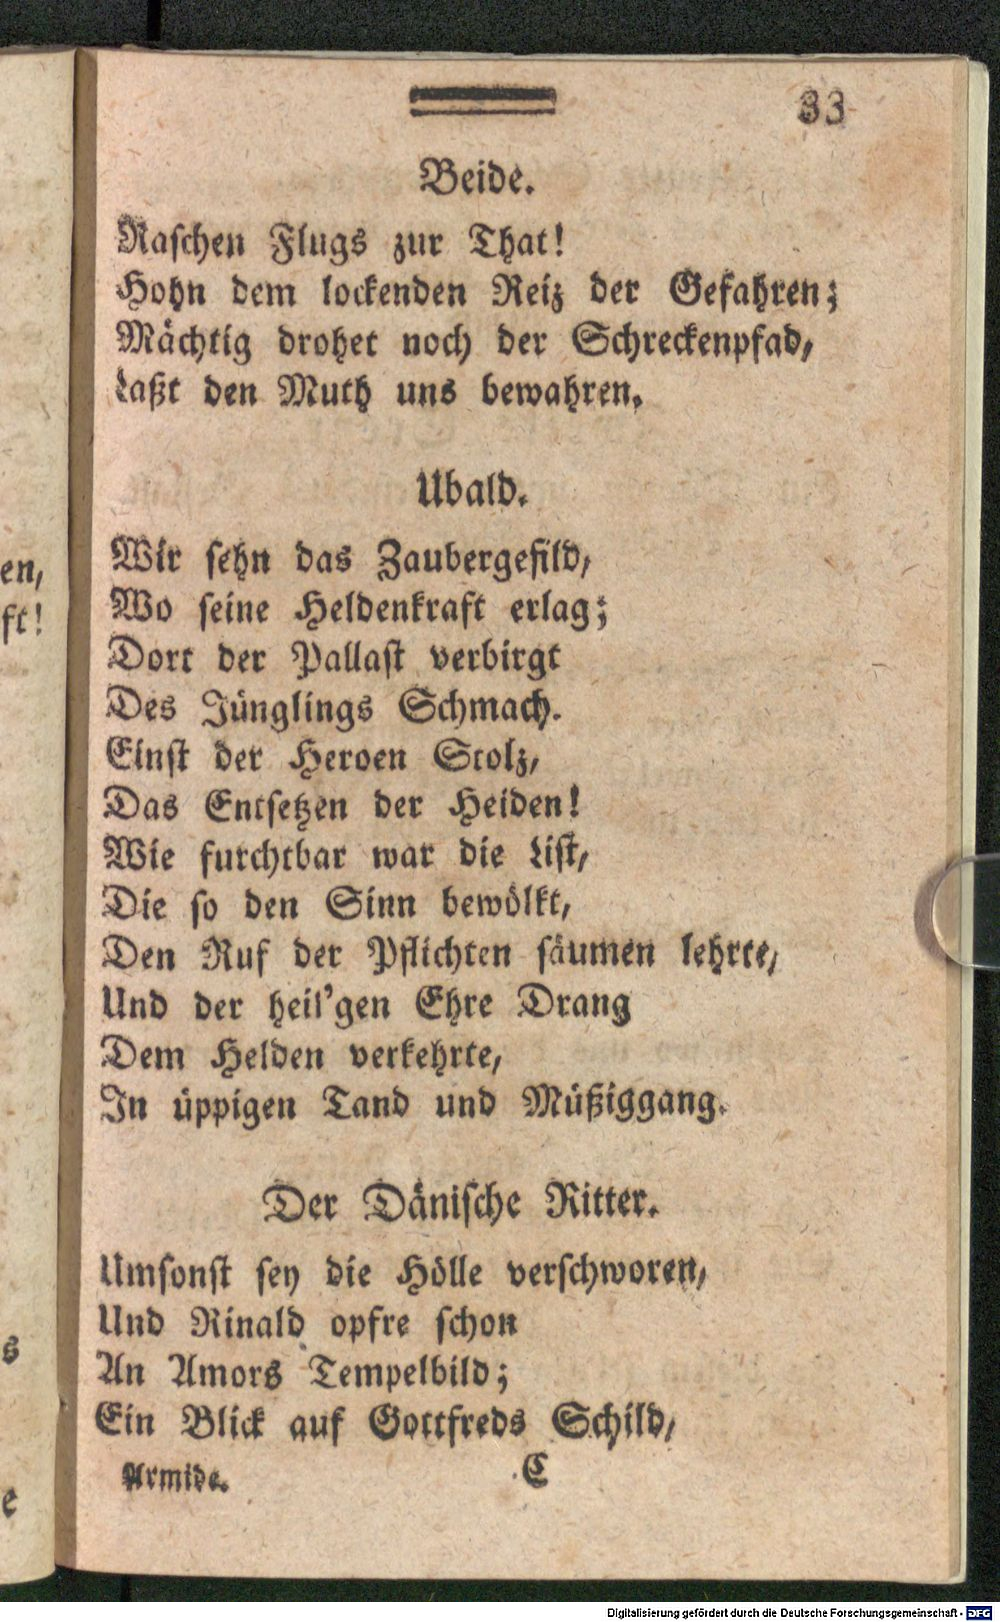 33
Beide.
Raschen Flugs zur That!
Hohn dem lockenden Reiz der Gefahren;
Mächtig drohet noch der Schreckenpfad,
Laßt den Muth uns bewahren.
Ubald.
Wir sehn das Zaubergefild,
Wo seine Heldenkraft erlag;
Dort der Pallast verbirgt
Des Jünglings Schmach.
Einst der Heroen Stolz,
Das Entsetzen der Heiden!
Wie furchtbar war die List,
Die so den Sinn bewölkt,
Den Ruf der Pflichten säumen lehrte,
Und der heil'gen Ehre Drang
Dem Helden verkehrte,
In üppigen Tand und Müßiggang.
Der Dänische Ritter.
Umsonst sey die Hölle verschworen,
Und Rinald opfre schon
An Amors Tempelbild;
Ein Blick auf Gottfreds Schild,
Armide. C
en,
ft!
s
e
Digitalisierung gefördert durch die Deutsche Forschungsgemeinschaft - DFG